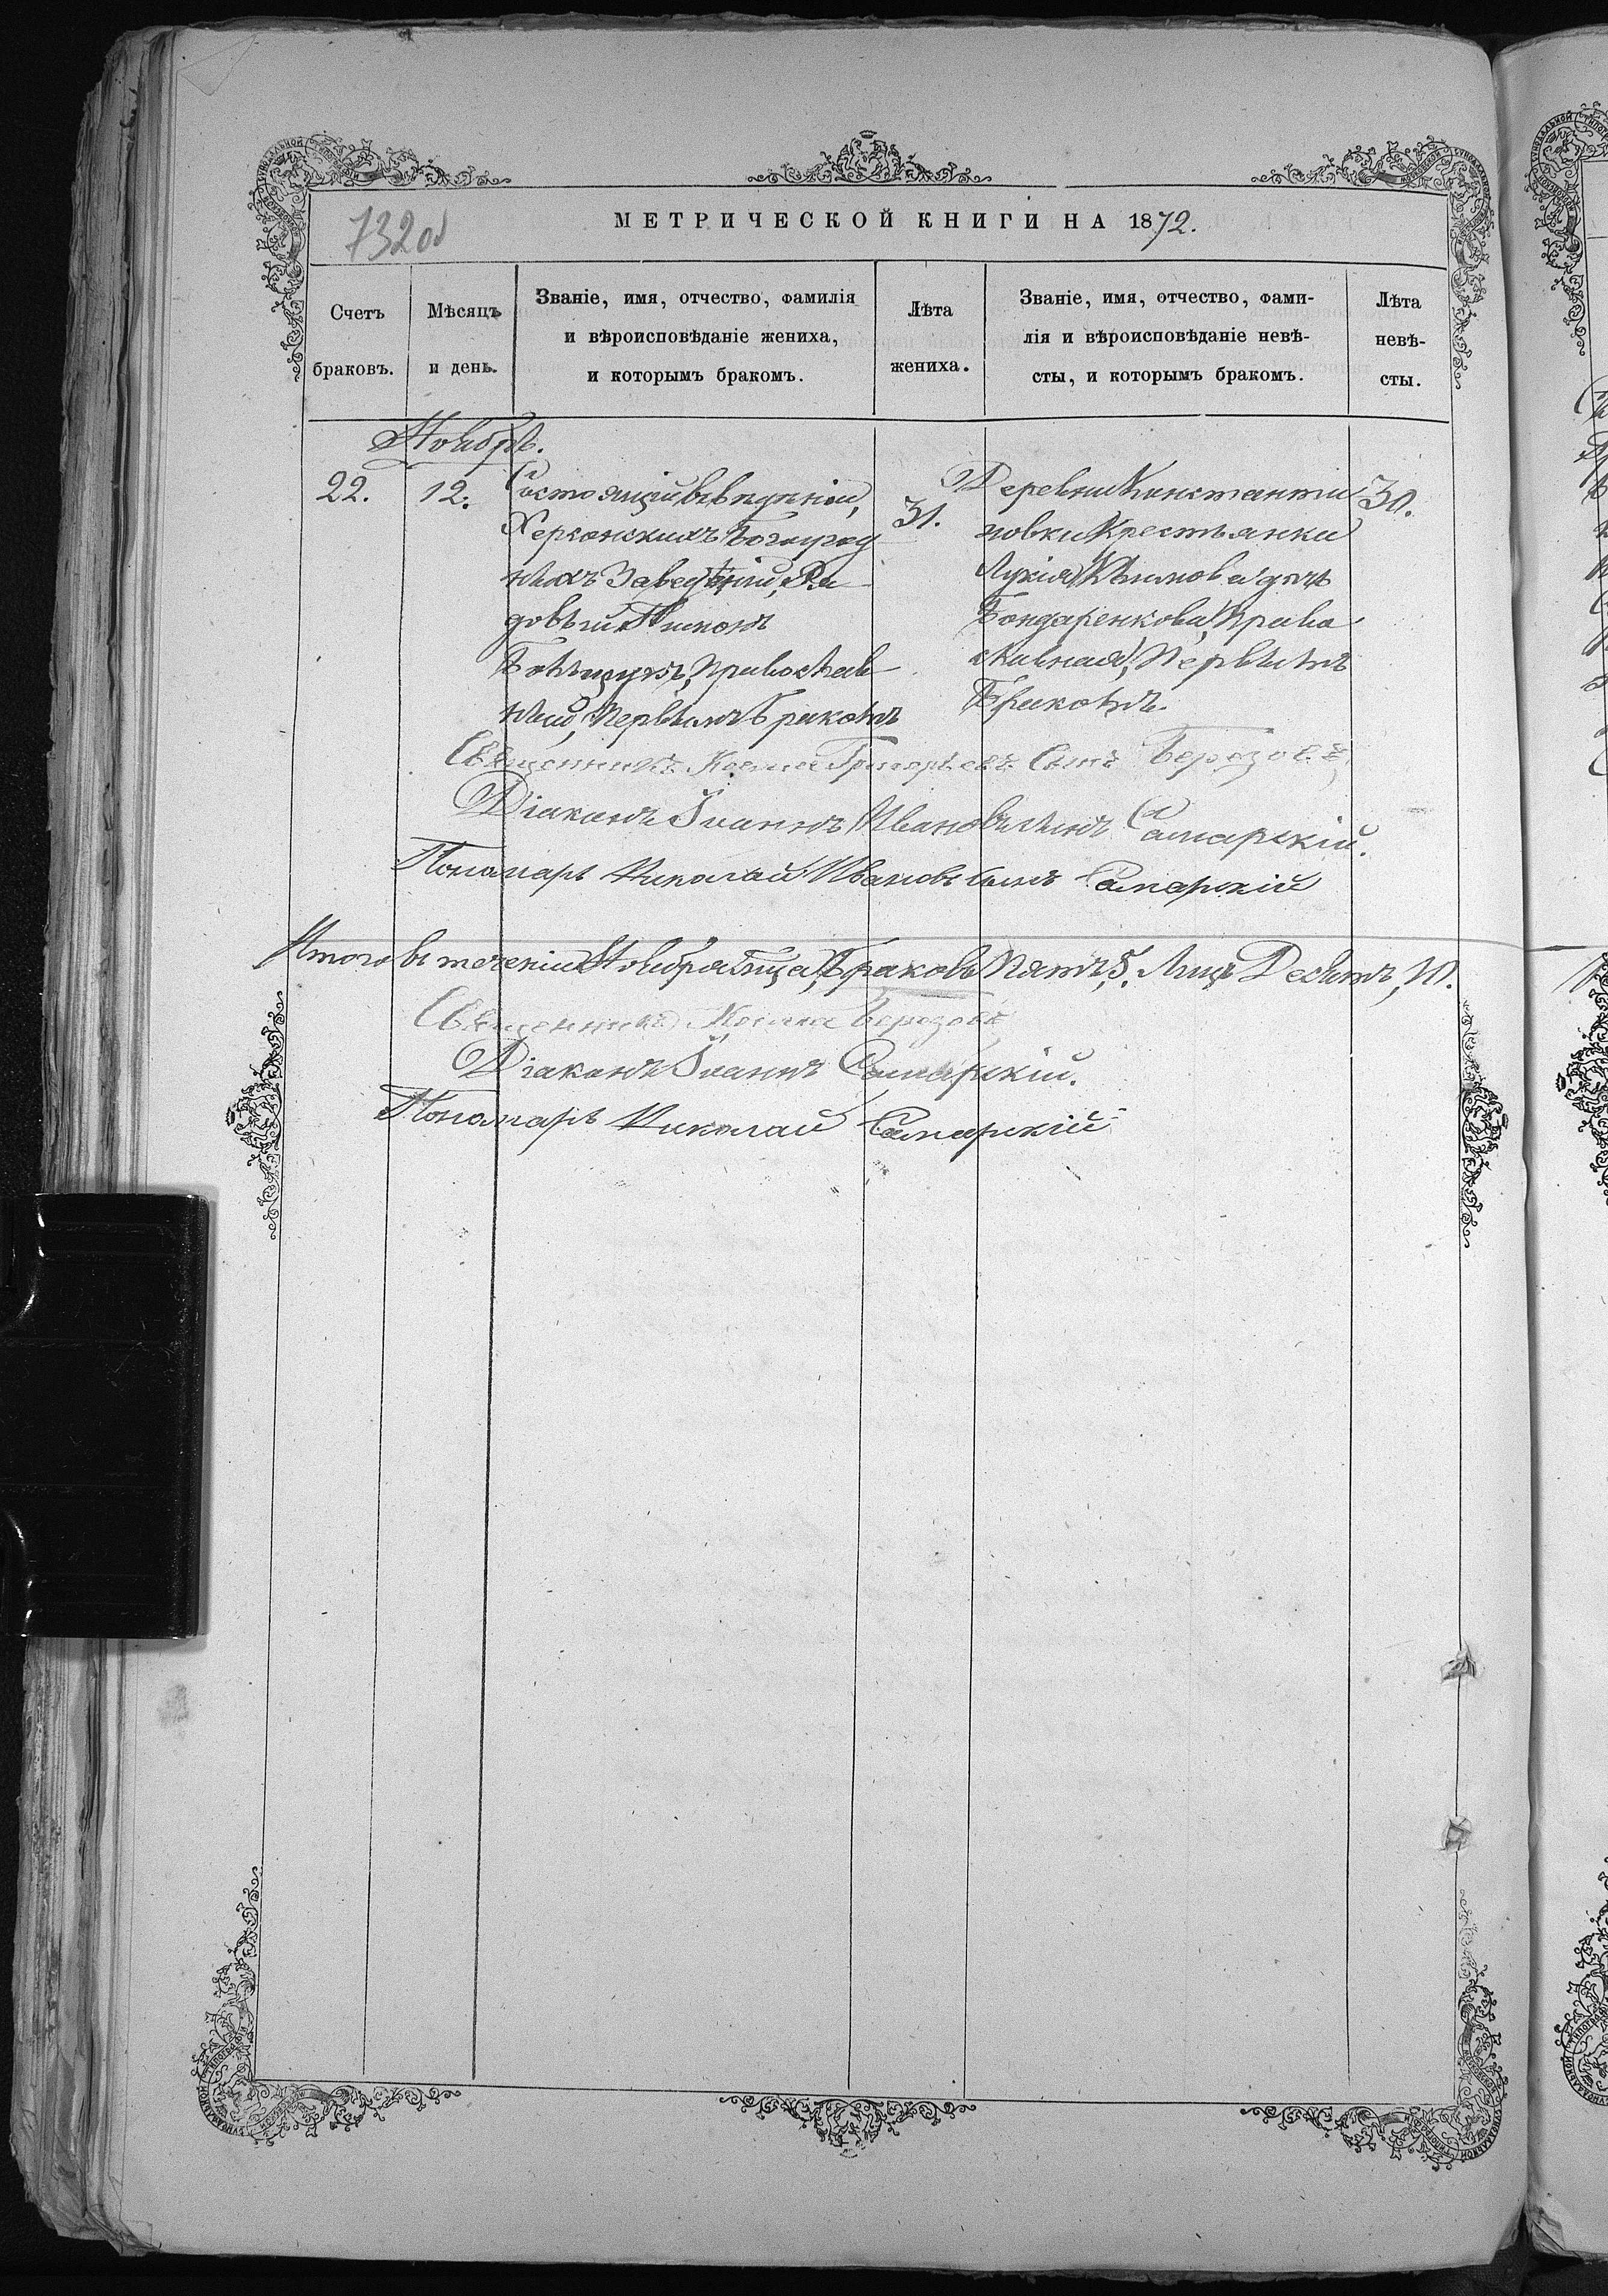 732об
МЕТРИЧЕСКОЙ КНИГИ НА 1872.
Счетъ браковъ.
Мѣсяцъ и день.
Званіе, имя, отчество, фамилія
и вѣроисповѣданіе жениха,
и которымъ бракомъ.
Лѣта жениха.
Званіе, имя, отчество, фами-
лія и вѣроисповѣданіе невѣ-
сты, и которымъ бракомъ.
Лѣта невѣ-
сты.
Ноябрь.
22.
12.
Состоящій въ вѣдѣніи,
Херсонскихъ Богоугод
ныхъ Заведѣній, Ря
довый Пименъ
Православ
ный, Первымъ Бракомъ
31.
Деревни Константи
новки Крестьянка
Лукія Климова дочь
Бондаренкова, Право
славная, Первымъ
Бракомъ.
30.
Священникъ Косма Григорьевъ Сынъ Березовъ
Діаконъ Іоаннъ Ивановъ Сынъ Самарскій.
Пономарь Николай Ивановъ Сынъ Самарскій
Итого въ теченіи Ноября Мѣсяца, Браковъ Пять, 5, Лицъ Десять, 10.
Священникъ Косма Березовъ
Діаконъ Іоаннъ Самарскій.
Пономарь Николай Самарскій